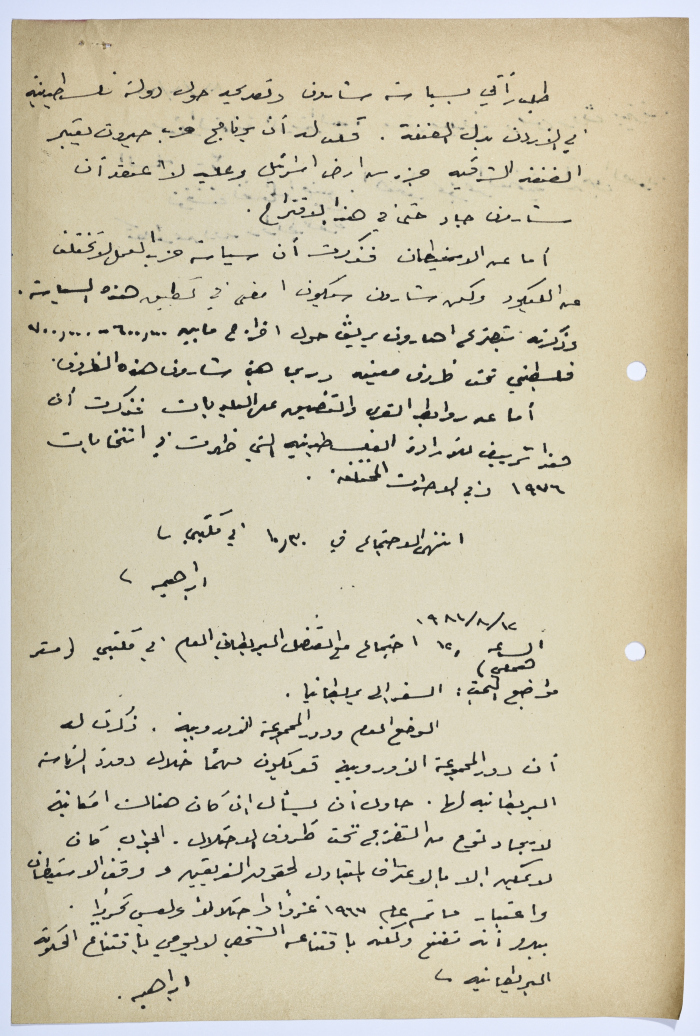 طلب رأيي بسياسة شارون وتصريحه حول دولة فلسطينية
في الاردن بدل الضفة . فقلت له أن برنامج حزب حيروت يعتبر
الضفة الشرقيه جزء من ارض اسرائيل وعليه لا اعتقد أن
شارون جاد حتى في هذا الاقتراح .
أما عن الاستيطان فذكرت أن سياسة حزب العمل لا تختلف
عن الليكود ولكن شارون سيكون امضى في تطبيق هذه السياسة .
وذكرته بتصريح اهارون ياريف حول اخراج ما بين ٦٠٠,٠٠٠ - ٧٠٠,٠٠٠
فلسطيني تحت ظروف معينه وربما هيأ شارون هذه الظروف .
أما عن روابط القرى والتضييق على البلديات فذكرت أن
هذا تزييف للارادة الفلسطينيه التي ظهرت في انتخابات
١٩٧٦ وفي الاحداث المختلفة .
انتهى الاجتماع في ١٠,٣٠ في مكتبي
ابراهيم
١٩٨١/٨/١٢
الساعه ١٢, اجتماع مع القنصل البريطاني العام في مكتبي (
مواضيع البحث : السفر الى بريطانيا .
الوضع العام ودور المجموعة الاوروبية . ذكرت له
أن دور المجموعة الاوروبية قد يكون مهمًا خلال دورة الرئاسة
البريطانيه لها . حاول أن يسأل ان كان هنالك امكانية
لايجاد نوع من التفاوض تحت ظروف الاحتلال . الجواب كان
لا يمكن الا بالاعتراف المتبادل لحقوق الفريقين ووقف الاستيطان
واعتبار ما تم عام ١٩٦٧ غزوًا واحتلالًا وليس تحريرًا .
يبدو أنه مقتنع ولكنه باقتناعه الشخصي لا يوحي باقتناع الحكومة
البريطانيه
ابراهيم .